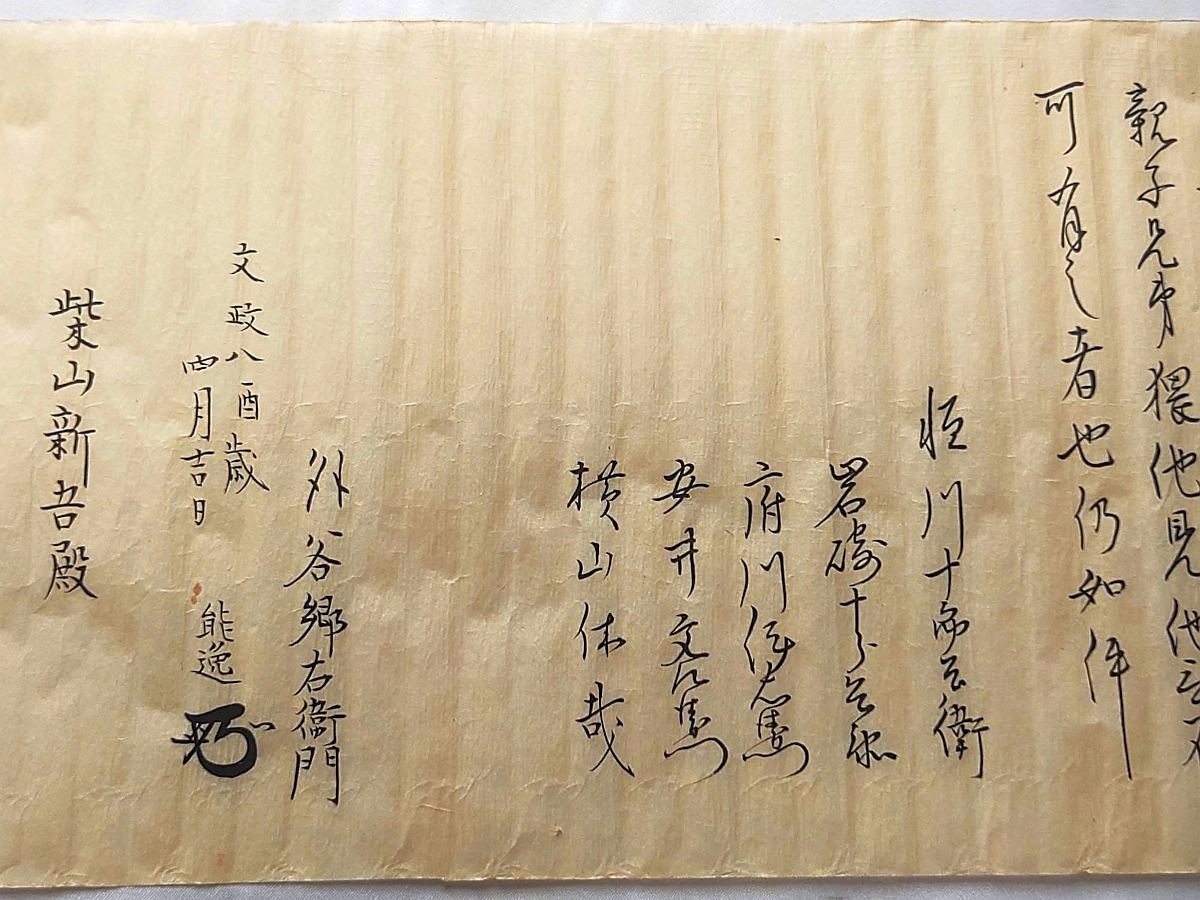 親子兄弟猥他見他言不
可有之者也仍如件
恒川十郎兵衛
岩﨑十兵衛
府川
安井文左衛門
横山休哉
外谷郷右衛門
文政八酉歳
四月吉日
能逸
柴山新吾殿